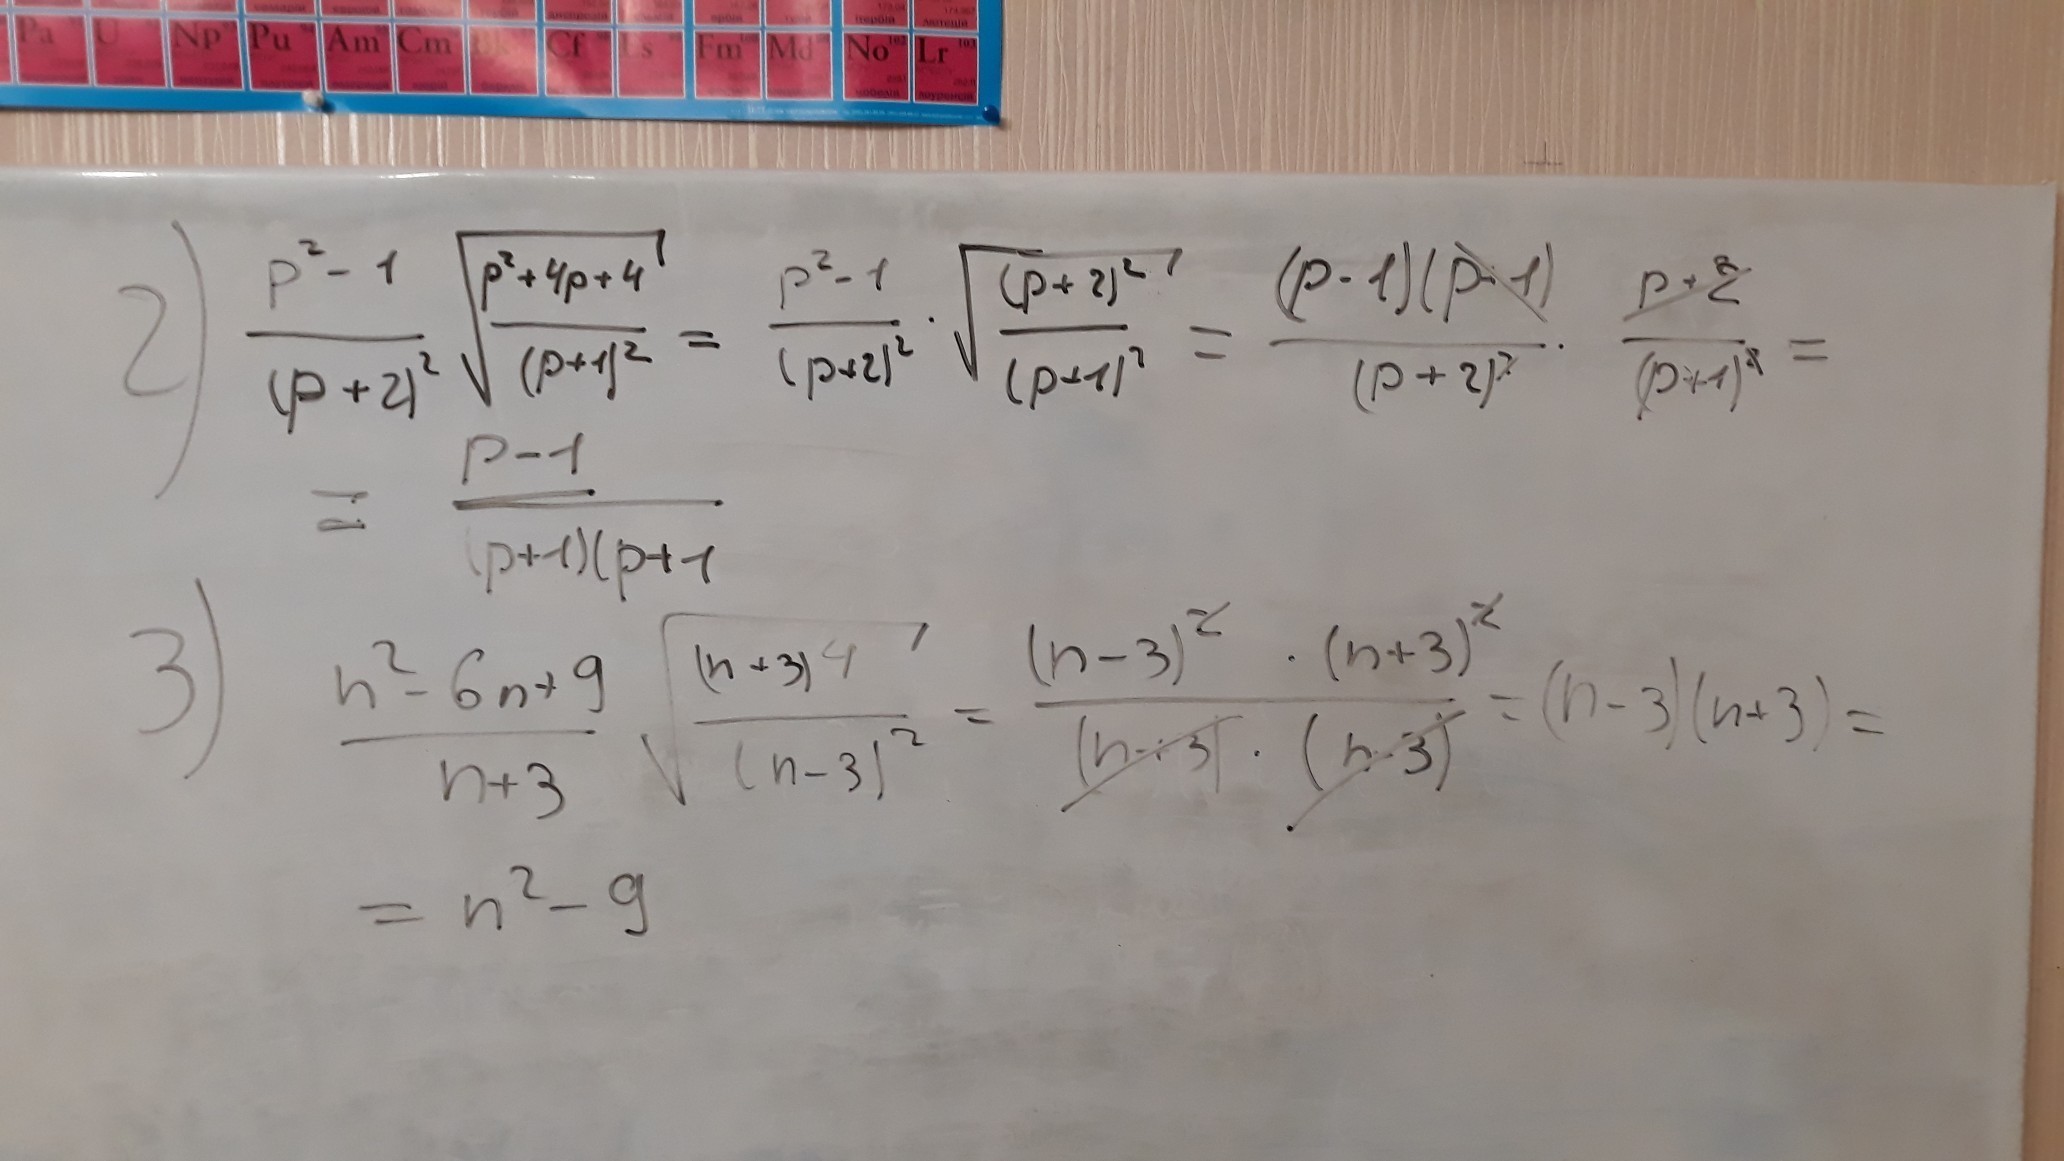 Pa U Np Pu Am Cm Bk Cf Es Fm Md No 102 Lr 103
2) \frac{p^2-1}{(p+2)^2} \sqrt{\frac{p^2+4p+4}{(p+1)^2}} = \frac{p^2-1}{(p+2)^2} \cdot \sqrt{\frac{(p+2)^2}{(p+1)^2}} = \frac{(p-1)(p-1)}{(p+2)^2} \cdot \frac{p+2}{(p+1)^2} =
= \frac{p-1}{(p+1)(p+1}
3) \frac{n^2-6n+9}{n+3} \sqrt{\frac{(n+3)^4}{(n-3)^2}} = \frac{(n-3)^2 \cdot (n+3)^2}{(n+3) \cdot (n-3)} = (n-3)(n+3) =
= n^2-9